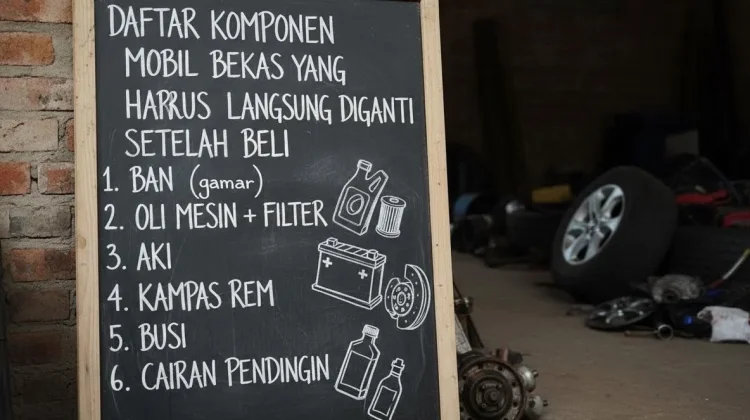 DAFTAR KOMPONEN
MOBIL BEKAS YANG
HAPRUS LANGSUNG DIGANTI
SETELAH BELI
1. BAN (gamar)
2. OLI MESIN + FILTER
3. AKI
4. KAMPAS REM
5. BUSI
6. CAIRAN PENDINGIN